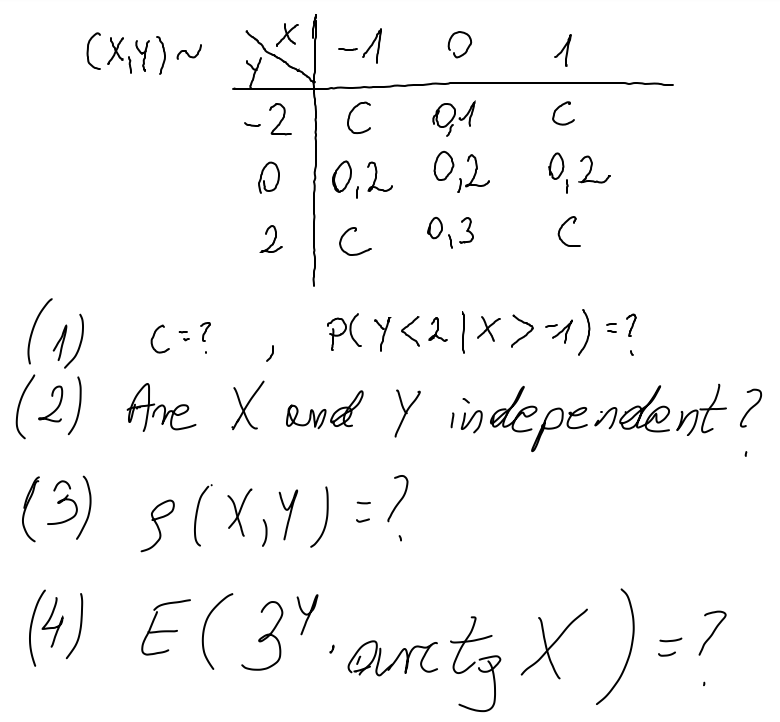 (X,Y) ~ Y X -1 0 1
-2 C 0,1 C
0 0,2 0,2 0,2
2 C 0,3 C
(1) C=? , P(Y<2|X>-1)=?
(2) Are X and Y independent?
(3) ρ(X,Y)=?
(4) E(3^Y · arctg X)=?